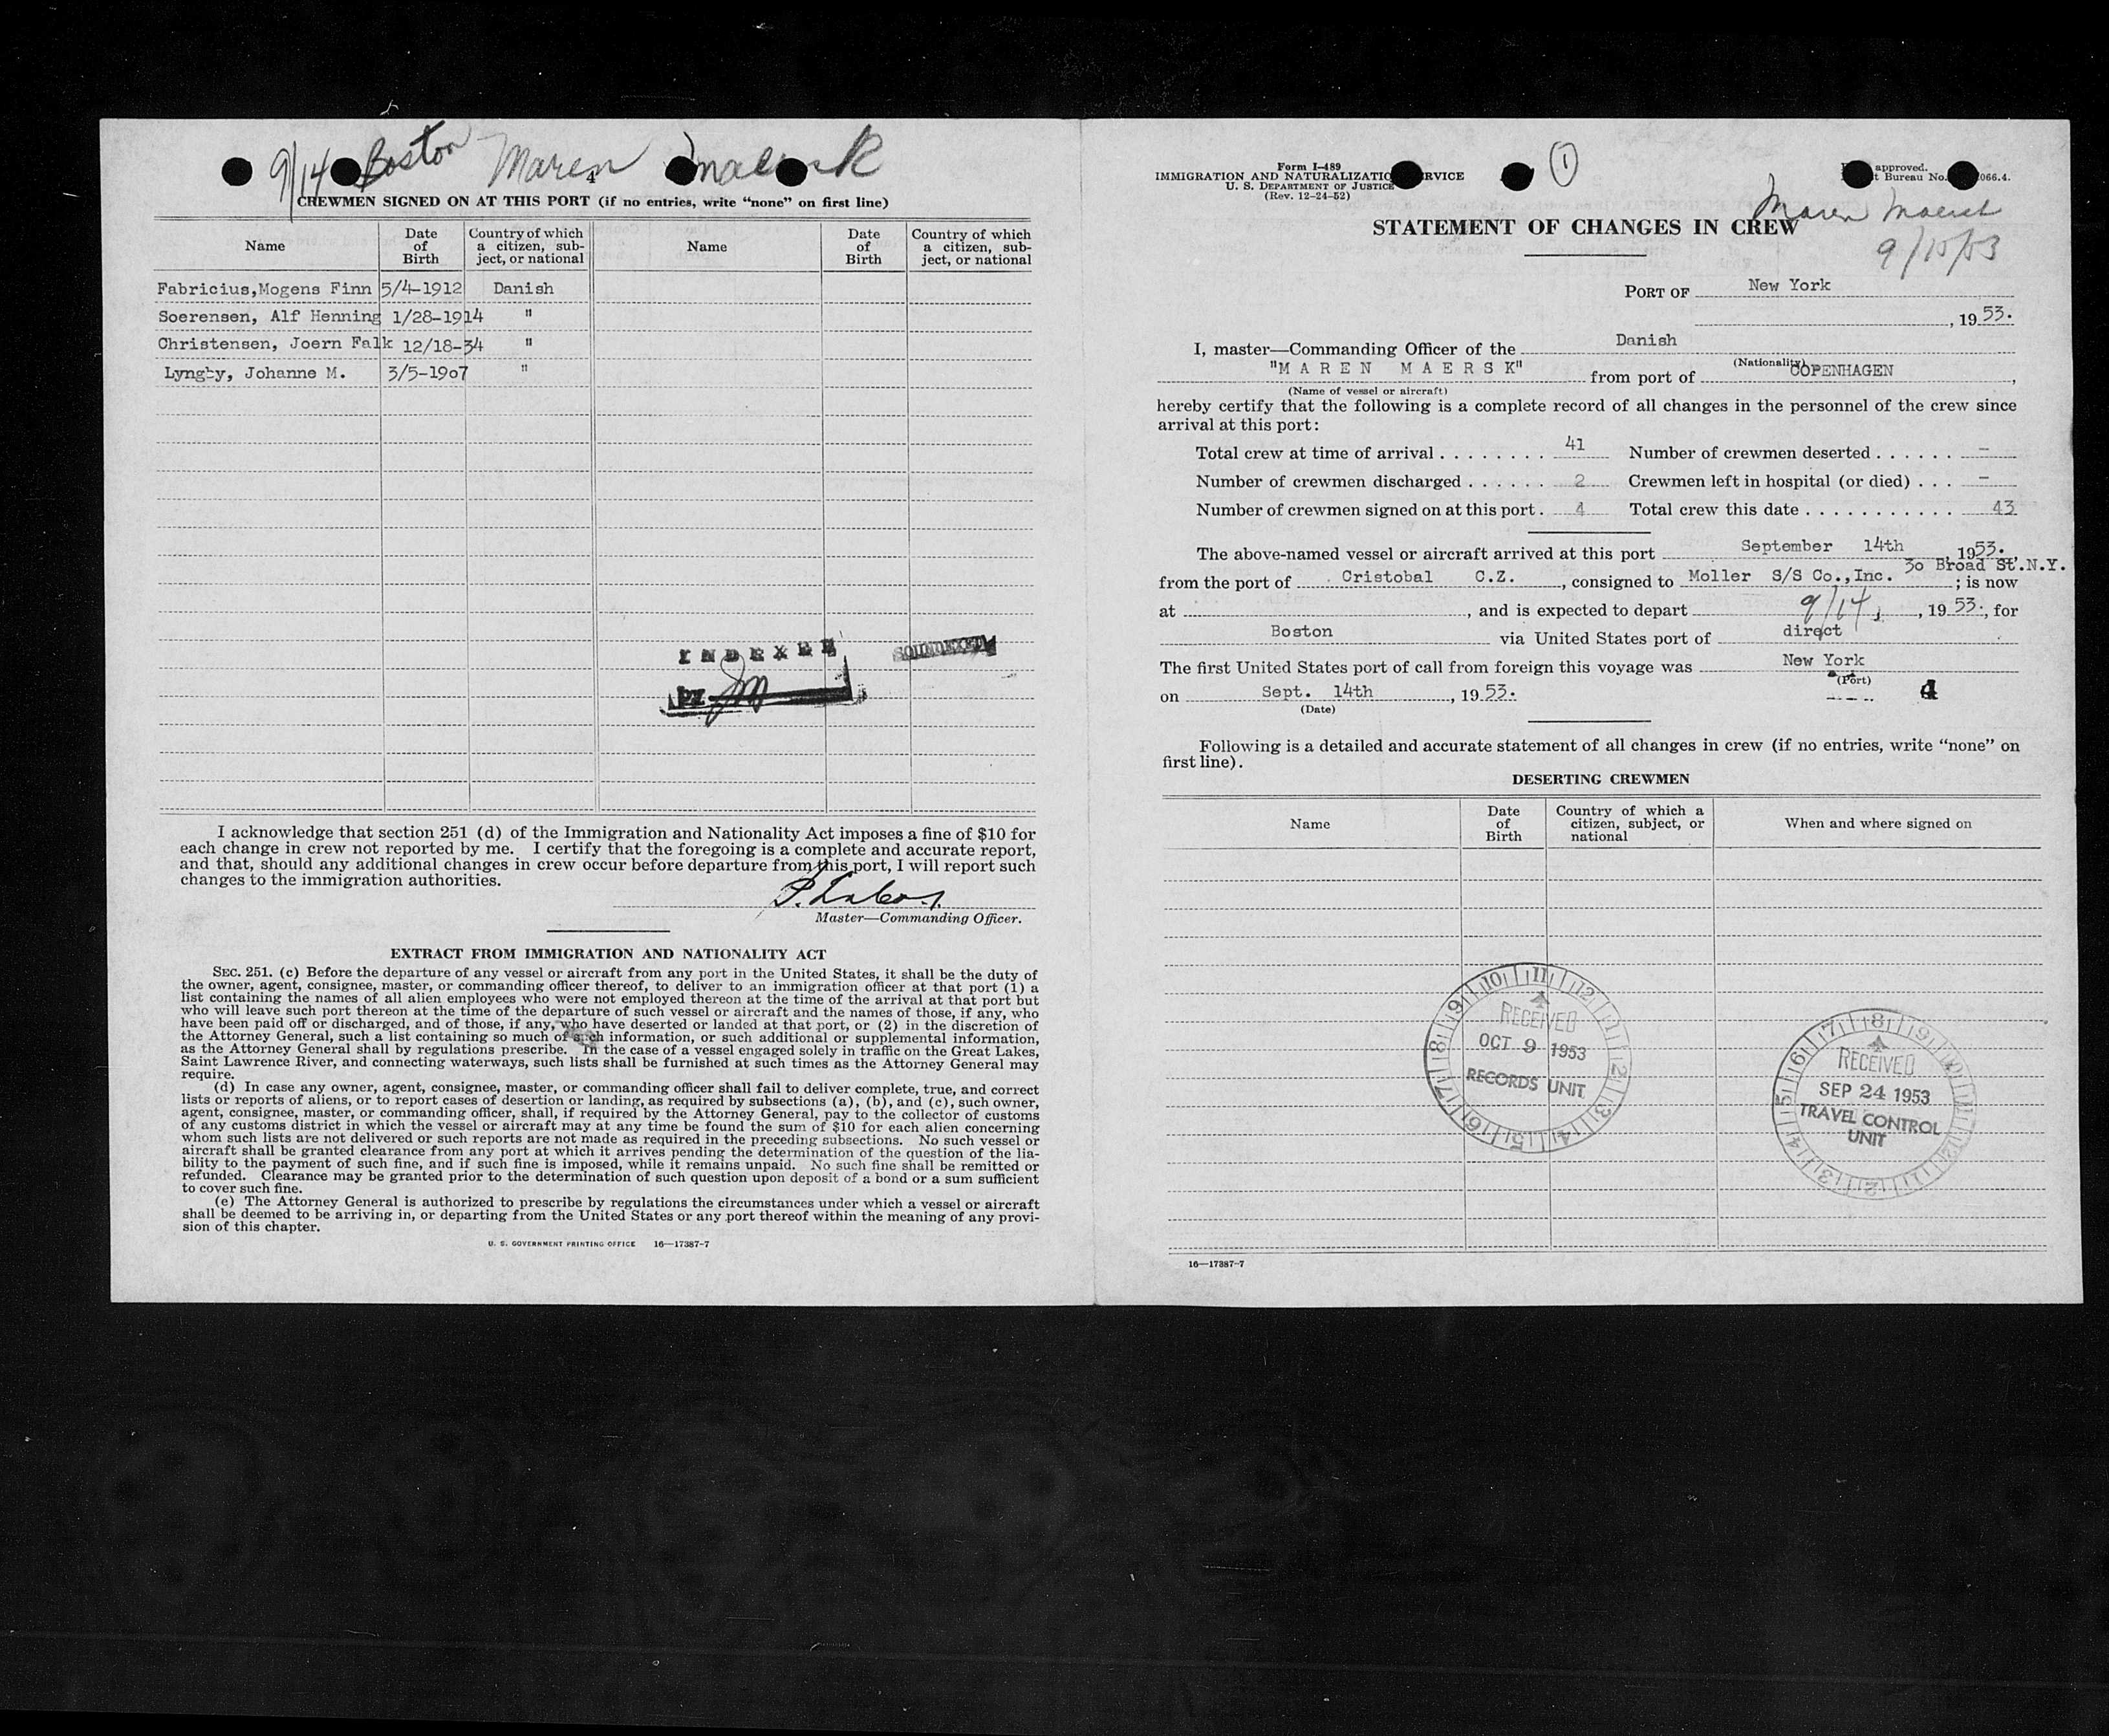 9/14 Boston Maren
4
CREWMEN SIGNED ON AT THIS PORT (if no entries, write "none" on first line)
Name Date of Birth Country of which a citizen, sub-ject, or national Name Date of Birth Country of which a citizen, sub-ject, or national
Fabricius,Mogens Finn 5/4-1912 Danish
Soerensen, Alf Henning 1/28-1914 "
Christensen, Joern Falk 12/18-34 "
Lyngby, Johanne M. 3/5-19o7 "
INDEXED
SOUNDEXED
by
I acknowledge that section 251 (d) of the Immigration and Nationality Act imposes a fine of $10 for
each change in crew not reported by me. I certify that the foregoing is a complete and accurate report,
and that, should any additional changes in crew occur before departure from this port, I will report such
changes to the immigration authorities.
Master—Commanding Officer.
EXTRACT FROM IMMIGRATION AND NATIONALITY ACT
SEC. 251. (c) Before the departure of any vessel or aircraft from any port in the United States, it shall be the duty of
the owner, agent, consignee, master, or commanding officer thereof, to deliver to an immigration officer at that port (1) a
list containing the names of all alien employees who were not employed thereon at the time of the arrival at that port but
who will leave such port thereon at the time of the departure of such vessel or aircraft and the names of those, if any, who
have been paid off or discharged, and of those, if any, who have deserted or landed at that port, or (2) in the discretion of
the Attorney General, such a list containing so much of such information, or such additional or supplemental information,
as the Attorney General shall by regulations prescribe. In the case of a vessel engaged solely in traffic on the Great Lakes,
Saint Lawrence River, and connecting waterways, such lists shall be furnished at such times as the Attorney General may
require.
(d) In case any owner, agent, consignee, master, or commanding officer shall fail to deliver complete, true, and correct
lists or reports of aliens, or to report cases of desertion or landing, as required by subsections (a), (b), and (c), such owner,
agent, consignee, master, or commanding officer, shall, if required by the Attorney General, pay to the collector of customs
of any customs district in which the vessel or aircraft may at any time be found the sum of $10 for each alien concerning
whom such lists are not delivered or such reports are not made as required in the preceding subsections. No such vessel or
aircraft shall be granted clearance from any port at which it arrives pending the determination of the question of the lia-
bility to the payment of such fine, and if such fine is imposed, while it remains unpaid. No such fine shall be remitted or
refunded. Clearance may be granted prior to the determination of such question upon deposit of a bond or a sum sufficient
to cover such fine.
(e) The Attorney General is authorized to prescribe by regulations the circumstances under which a vessel or aircraft
shall be deemed to be arriving in, or departing from the United States or any port thereof within the meaning of any provi-
sion of this chapter.
U. S. GOVERNMENT PRINTING OFFICE 16—17387-7
Form I-489
IMMIGRATION AND NATURALIZATIO RVICE
U. S. DEPARTMENT OF JUSTICE
(Rev. 12-24-52)
1
approved.
t Bureau No. 066.4.
Maren Maersk
STATEMENT OF CHANGES IN CREW
9/15/53
PORT OF New York
, 19 53.
I, master—Commanding Officer of the Danish
(Nationality)
"M A R E N M A E R S K" from port of COPENHAGEN ,
(Name of vessel or aircraft)
hereby certify that the following is a complete record of all changes in the personnel of the crew since
arrival at this port:
Total crew at time of arrival . . . . . . . . 41 Number of crewmen deserted . . . . . . -
Number of crewmen discharged . . . . . . 2 Crewmen left in hospital (or died) . . . -
Number of crewmen signed on at this port . 4 Total crew this date . . . . . . . . . . . 43
The above-named vessel or aircraft arrived at this port September 14th , 1953.,
from the port of Cristobal C.Z. , consigned to Moller S/S Co.,Inc. 3o Broad St.N.Y. ; is now
at , and is expected to depart 9/14, , 19 53., for
Boston via United States port of direct
The first United States port of call from foreign this voyage was New York
(Port)
on Sept. 14th , 19 53. 4
(Date)
Following is a detailed and accurate statement of all changes in crew (if no entries, write "none" on
first line).
DESERTING CREWMEN
Name Date of Birth Country of which a citizen, subject, or national When and where signed on
10 11 12 1 2 3 4 5 6 7 8 9
RECEIVED
OCT 9 1953
RECORDS UNIT
7 8 9 10 11 12 1 2 3 4 5 6
RECEIVED
SEP 24 1953
TRAVEL CONTROL
UNIT
16—17387-7